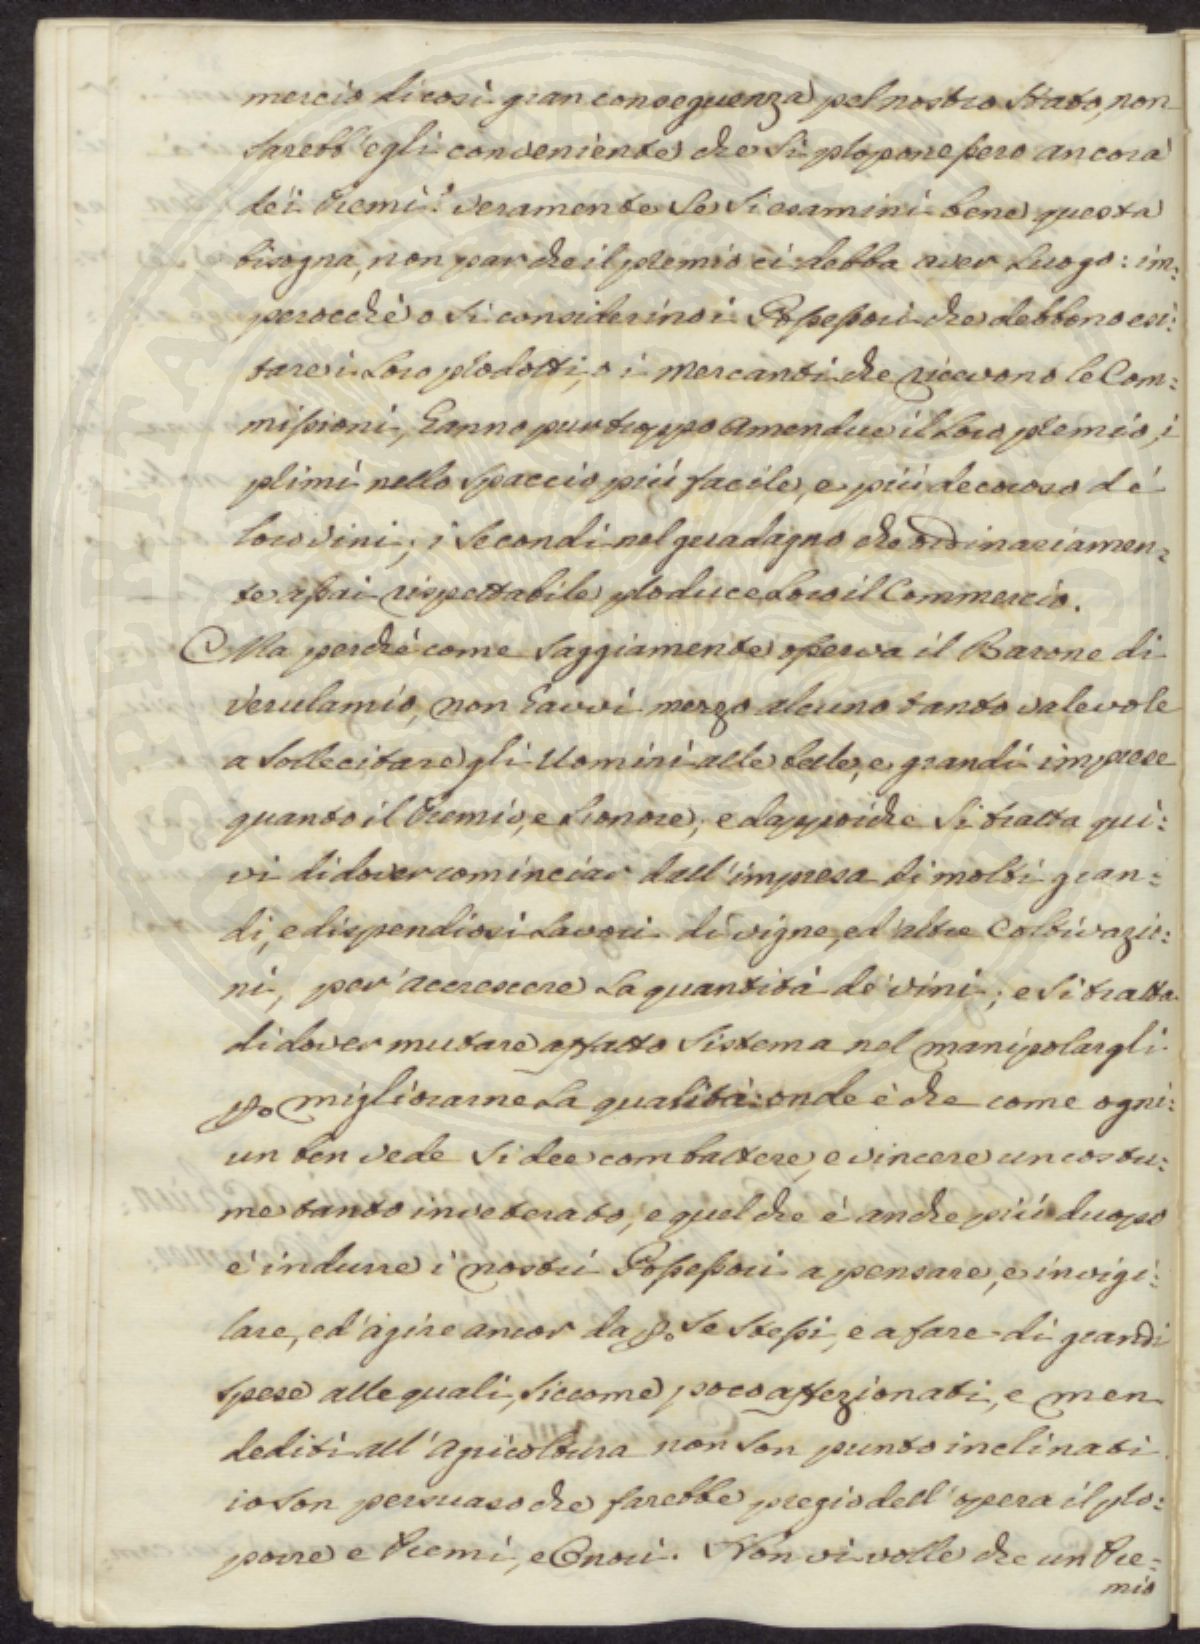 mercio di così gran conseguenza pel nostro Stato, non
sarebb'egli conveniente che si proponessero ancora
dei Premi? veramente se si esamini bene questa
bisogna, non par che il premio ci debba aver luogo: im=
perocchè o si considerino i Possessori che debbono esi=
tare i loro prodotti, o i mercanti che ricevono le Com=
missioni, hanno pur troppo amendue il loro premio, i
primi nello spaccio più facile, e più decoroso de'
loro vini; i secondi nel guadagno che ordinariamen=
te assai rispettabile produce loro il Commercio.
Ma perchè come saggiamente osserva il Barone di
Verulamio, non havvi mezzo alcuno tanto valevole
a sollecitare gli Uomini alle belle, e grandi imprese
quanto il Premio, e l'onore; e dappoichè si tratta qui=
vi di dover cominciar dall'impresa di molti gran=
di, e dispendiosi lavori di vigne, ed altre Coltivazio=
ni, per accrescere la quantità de' vini; e si tratta
di dover mutare affatto sistema nel manipolargli
po migliorarne la qualità: onde è che come ogni=
un ben vede si dee combattere, e vincere un costu=
me tanto inveterato, e quel che è anche più duopo
è indurre i nostri Possessori a pensare, e invigi=
lare, ed agire ancor da po se stessi, e a fare di grandi
spese alle quali, siccome poco affezionati, e men
dediti all'agricoltura non son punto inclinati
io son persuaso che farebbe pregio dell'opera il pro=
porre e Premi, e Onori. Non vi volle che un Pre=
mio